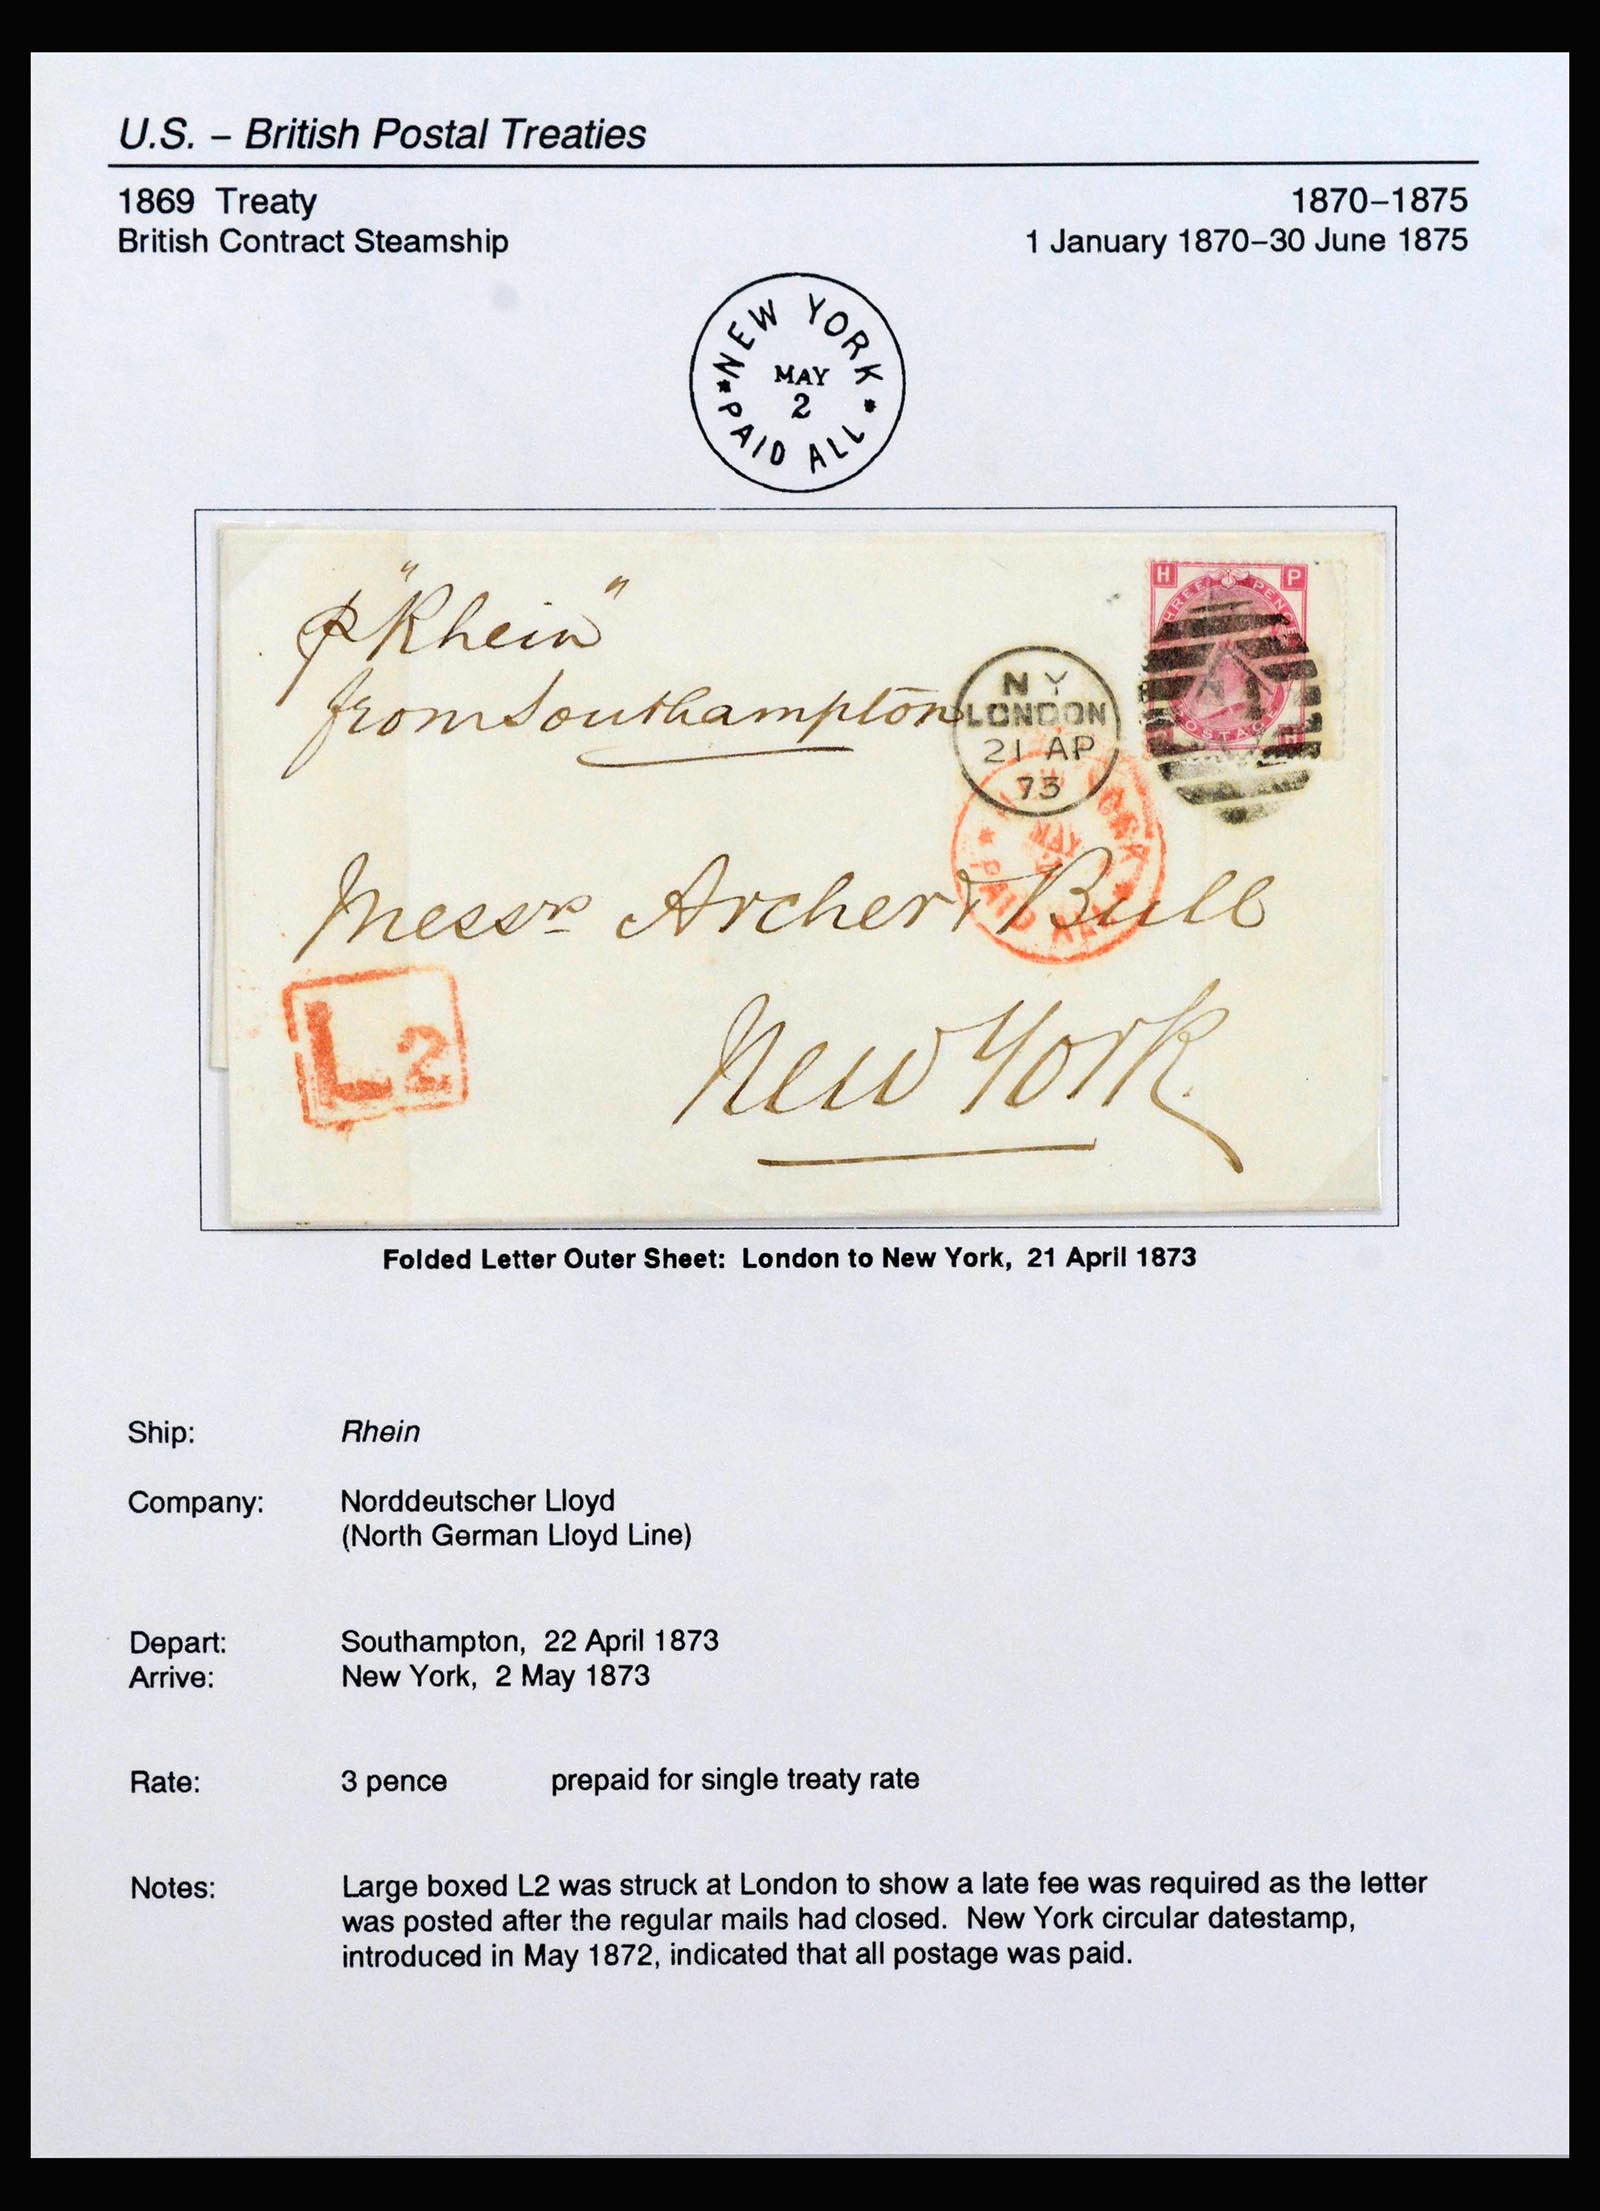 U.S. – British Postal Treaties
1869 Treaty
1870–1875
British Contract Steamship
1 January 1870–30 June 1875
NEW YORK
MAY
2
PAID ALL
H P
THREE PENCE
POSTAGE
H
p "Rhein"
from Southampton
N Y
LONDON
21 AP
73
YORK
PAID ALL
Messrs Archer & Bull
L2
New York
Folded Letter Outer Sheet: London to New York, 21 April 1873
Ship: Rhein
Company: Norddeutscher Lloyd
(North German Lloyd Line)
Depart: Southampton, 22 April 1873
Arrive: New York, 2 May 1873
Rate: 3 pence prepaid for single treaty rate
Notes: Large boxed L2 was struck at London to show a late fee was required as the letter
was posted after the regular mails had closed. New York circular datestamp,
introduced in May 1872, indicated that all postage was paid.